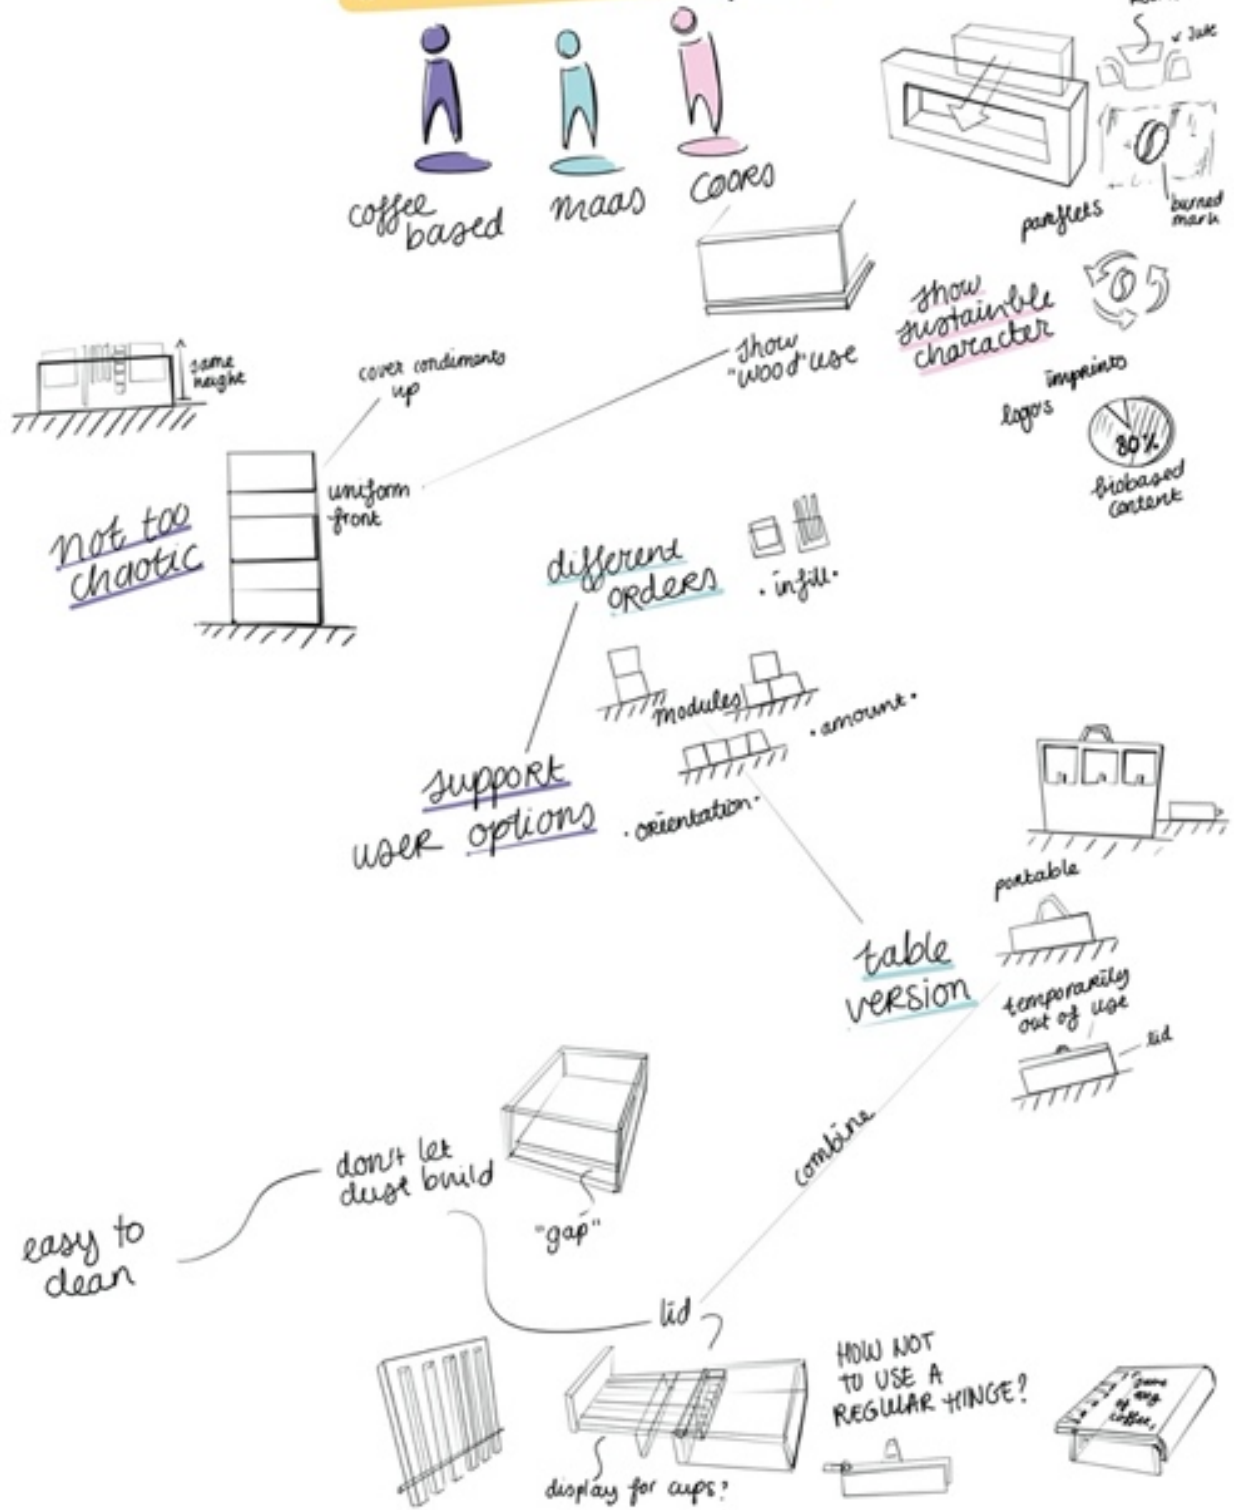 coffee
based
maas
COORS
Jute
burned
mark
pamflets
show
sustainble
character
imprints
logo's
80%
biobased
content
show
"wood" use
same
height
cover condiments
up
uniform
front
not too
chaotic
different
ORDERS
• infill •
modules
• amount •
• orientation •
support
user options
portable
table
version
temporarily
out of use
lid
combine
don't let
dust build
"gap"
easy to
clean
lid
display for cups?
HOW NOT
TO USE A
REGULAR HINGE?
of
coffee,